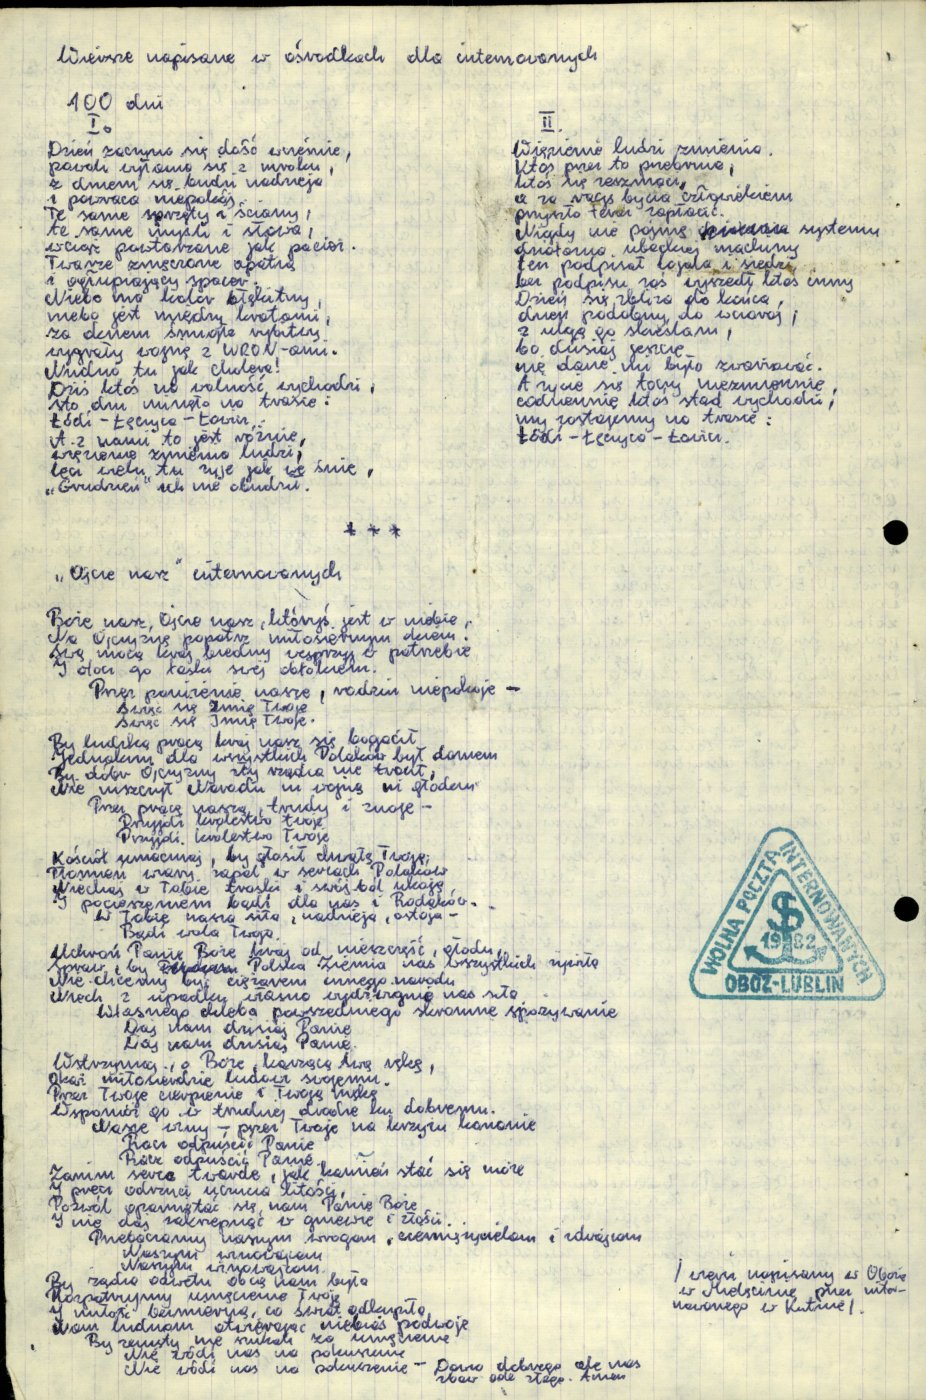 Wiersze napisane w ośrodkach dla internowanych
100 dni
I.
Dzień zaczyna się dość wcześnie,
powoli wyłania się z mroku,
z dniem się budzi nadzieja
i powraca niepokój.
Te same sprzęty i ściany,
te same myśli i słowa,
wciąż powtarzane jak pacierz.
Twarze zmęczone apatią
i ogłupiający spacer.
Niebo ma kolor błękitny,
niebo jest między kratami,
za oknem szmaty
wygrały wojnę z WRON-ami.
Nudno tu jak cholera!
Dziś ktoś na wolność wychodzi,
sto dni minęło na trasie:
Łódź - Łęczyca - Łowicz.
A z nami to jest różnie,
więzienie zmienia ludzi,
lecz wielu tu żyje jak we śnie,
„Grudzień" ich nie obudził.
II.
Więzienie ludzi zmienia.
Ktoś przez to przebrnie,
ktoś się zeszmaci,
a za rację bycia człowiekiem
przyszło teraz zapłacić.
Nigdy nie pojmę systemu
działania ubeckiej machiny
ten podpisał lojala i siedzi
bez podpisu zaś wyszedł ktoś inny
Dzień się zbliża do końca,
dzień podobny do wczoraj,
z ulgą go skreślam,
bo dzisiaj jeszcze
nie dane mi było zwariować.
A życie się toczy niezmiennie,
codziennie ktoś stąd wychodzi,
my zostajemy na trasie:
Łódź - Łęczyca - Łowicz.
* * *
„Ojcze nasz" internowanych
Boże nasz, Ojcze nasz, któryś jest w niebie,
Na Ojczyznę popatrz miłosiernym okiem.
Swą mocą kraj biedny wesprzyj w potrzebie
I otocz go łaski swej obłokiem.
Przez poniżenie nasze, rodzin niepokoje -
Święć się Imię Twoje
Święć się Imię Twoje.
By ludzką pracą kraj nasz się bogacił
Jednakim dla wszystkich Polaków był domem
By dóbr Ojczyzny zły rządca nie tracił,
Nie niszczył Narodu ni wojną ni głodem
Przez pracę naszą, trudy i znoje -
Przyjdź królestwo Twoje
Przyjdź królestwo Twoje
Kościół umacniaj, by głosił chwałę Twoją,
Płomień wiary zapal w sercach Polaków
Niechaj w Tobie troski i swój ból ukoją
I pocieszeniem bądź dla nas i Rodaków.
W Tobie nasza siła, nadzieja, ostoja -
Bądź wola Twoja.
Uchroń Panie Boże kraj od nieszczęść, głodu,
Spraw, by Polska Ziemia nas wszystkich żywiła
Nie chcemy być ciężarem innego narodu
Niech z upadku własna wydźwignie nas siła
Własnego chleba powszedniego skromne spożywanie
Daj nam dzisiaj Panie
Daj nam dzisiaj Panie.
Wstrzymaj, o Boże, karzącą Swą rękę,
Okaż miłosierdzie ludowi swojemu.
Przez Twoje cierpienie i Twoją mękę
Wspomóż go w trudnej drodze ku dobremu.
Nasze winy - przez Twoje na krzyżu konanie
Racz odpuścić Panie
Racz odpuścić Panie.
Zanim serce twarde, jak kamień stać się może
I precz odrzuci uczucia litości,
Pozwól opamiętać się nam Panie Boże
I nie daj zakrzepnąć w gniewie i złości.
Przebaczamy naszym wrogom, ciemiężycielom i zdrajcom
Naszym winowajcom
Naszym winowajcom.
By żądza odwetu obcą nam była
Rozpatrujmy umęczenie Twoje
I miłość bezmierną, co świat odkupiła
Nam ludziom otwierając niebios podwoje
By zemsty nie szukać za umęczenie
Nie wódź nas na pokuszenie
Nie wódź nas na pokuszenie - Daro dobrego ale nas
zbaw ode złego. Amen
WOLNA POCZTA INTERNOWANYCH
S
1982
OBÓZ-LUBLIN
/ wiersz napisany w Obozie
w Mielęcinie przez inter-
nowanego w Kutnie/.